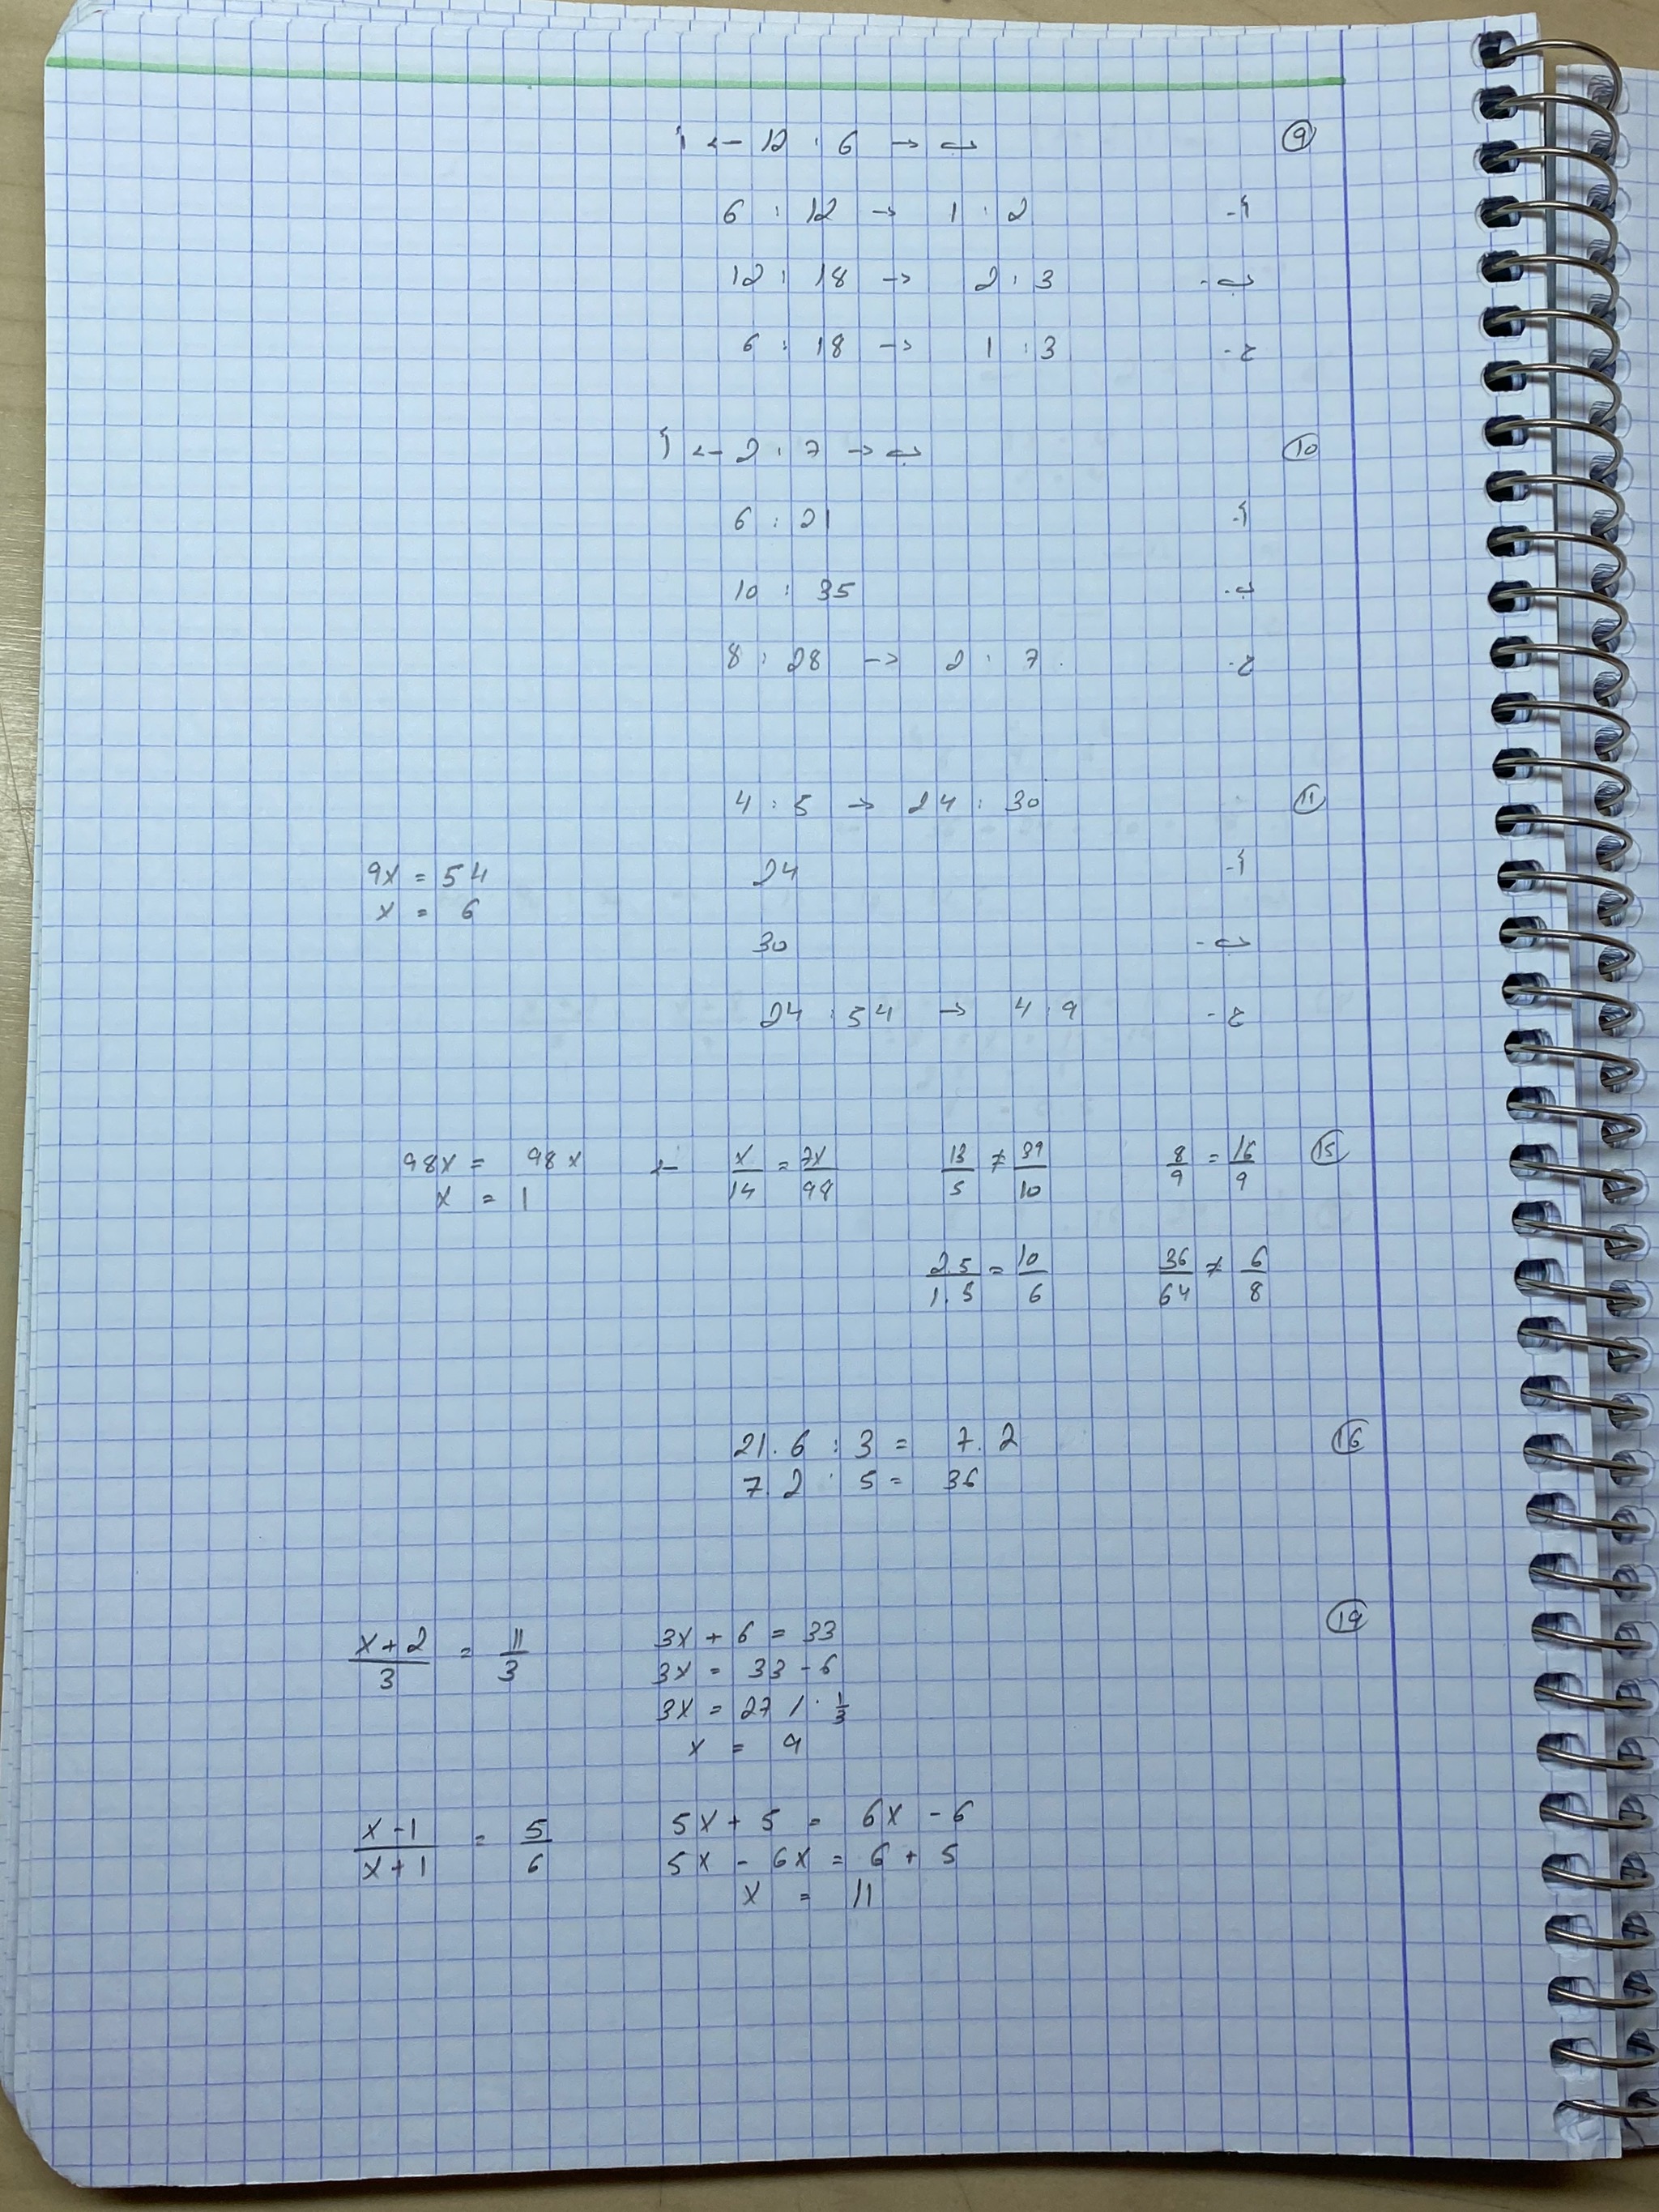 ⑨ أ ← 12 : 6 → ب
أ- 6 : 12 → 1 : 2
ب- 12 : 18 → 2 : 3
ج- 6 : 18 → 1 : 3
⑩ أ ← 2 : 7 → ب
أ- 6 : 21
ب- 10 : 35
ج- 8 : 28 → 2 : 7
⑪ 4 : 5 → 24 : 30
أ- 24
9x = 54
x = 6
ب- 30
ج- 24 : 54 → 4 : 9
⑮ 8/9 = 16/9 13/5 ≠ 39/10 x/14 = 7x/98 ← 98x = 98x
x = 1
36/64 ≠ 6/8 2.5/1.5 = 10/6
⑯ 21.6 : 3 = 7.2
7.2 : 5 = 36
⑲
(x+2)/3 = 11/3 3x + 6 = 33
3x = 33 - 6
3x = 27 / · 1/3
x = 9
(x-1)/(x+1) = 5/6 5x + 5 = 6x - 6
5x - 6x = 6 + 5
x = 11